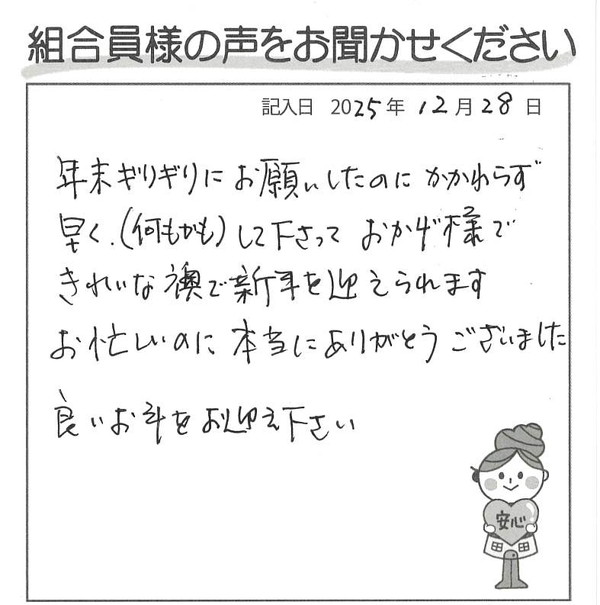 組合員様の声をお聞かせください
記入日 2025年 12月 28日
年末ギリギリにお願いしたのにかかわらず
早く、(何もかも)して下さって おかげ様で
きれいな襖で新年を迎えられます
お忙しいのに 本当にありがとうございました
良いお年をお迎え下さい
安心